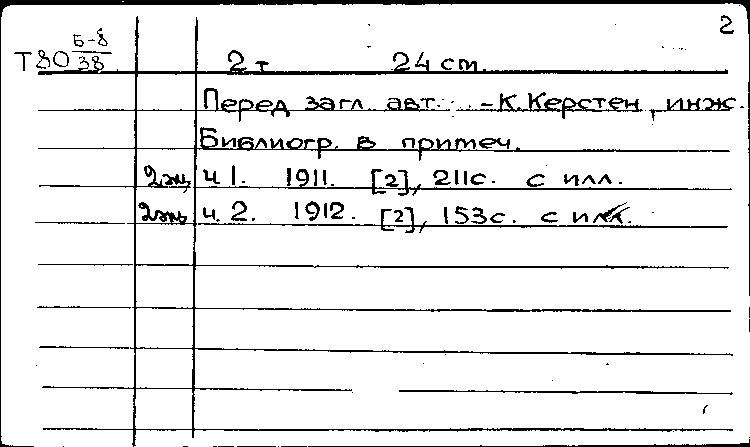 2
Т80 Б-8/38 2 т 24 см.
Перед загл. авт. - К. Керстен, инж.
Библиогр. в примеч.
2 экз. ч 1. 1911. [2], 211с. с илл.
2 экз. ч. 2. 1912. [2], 153с. с илл.